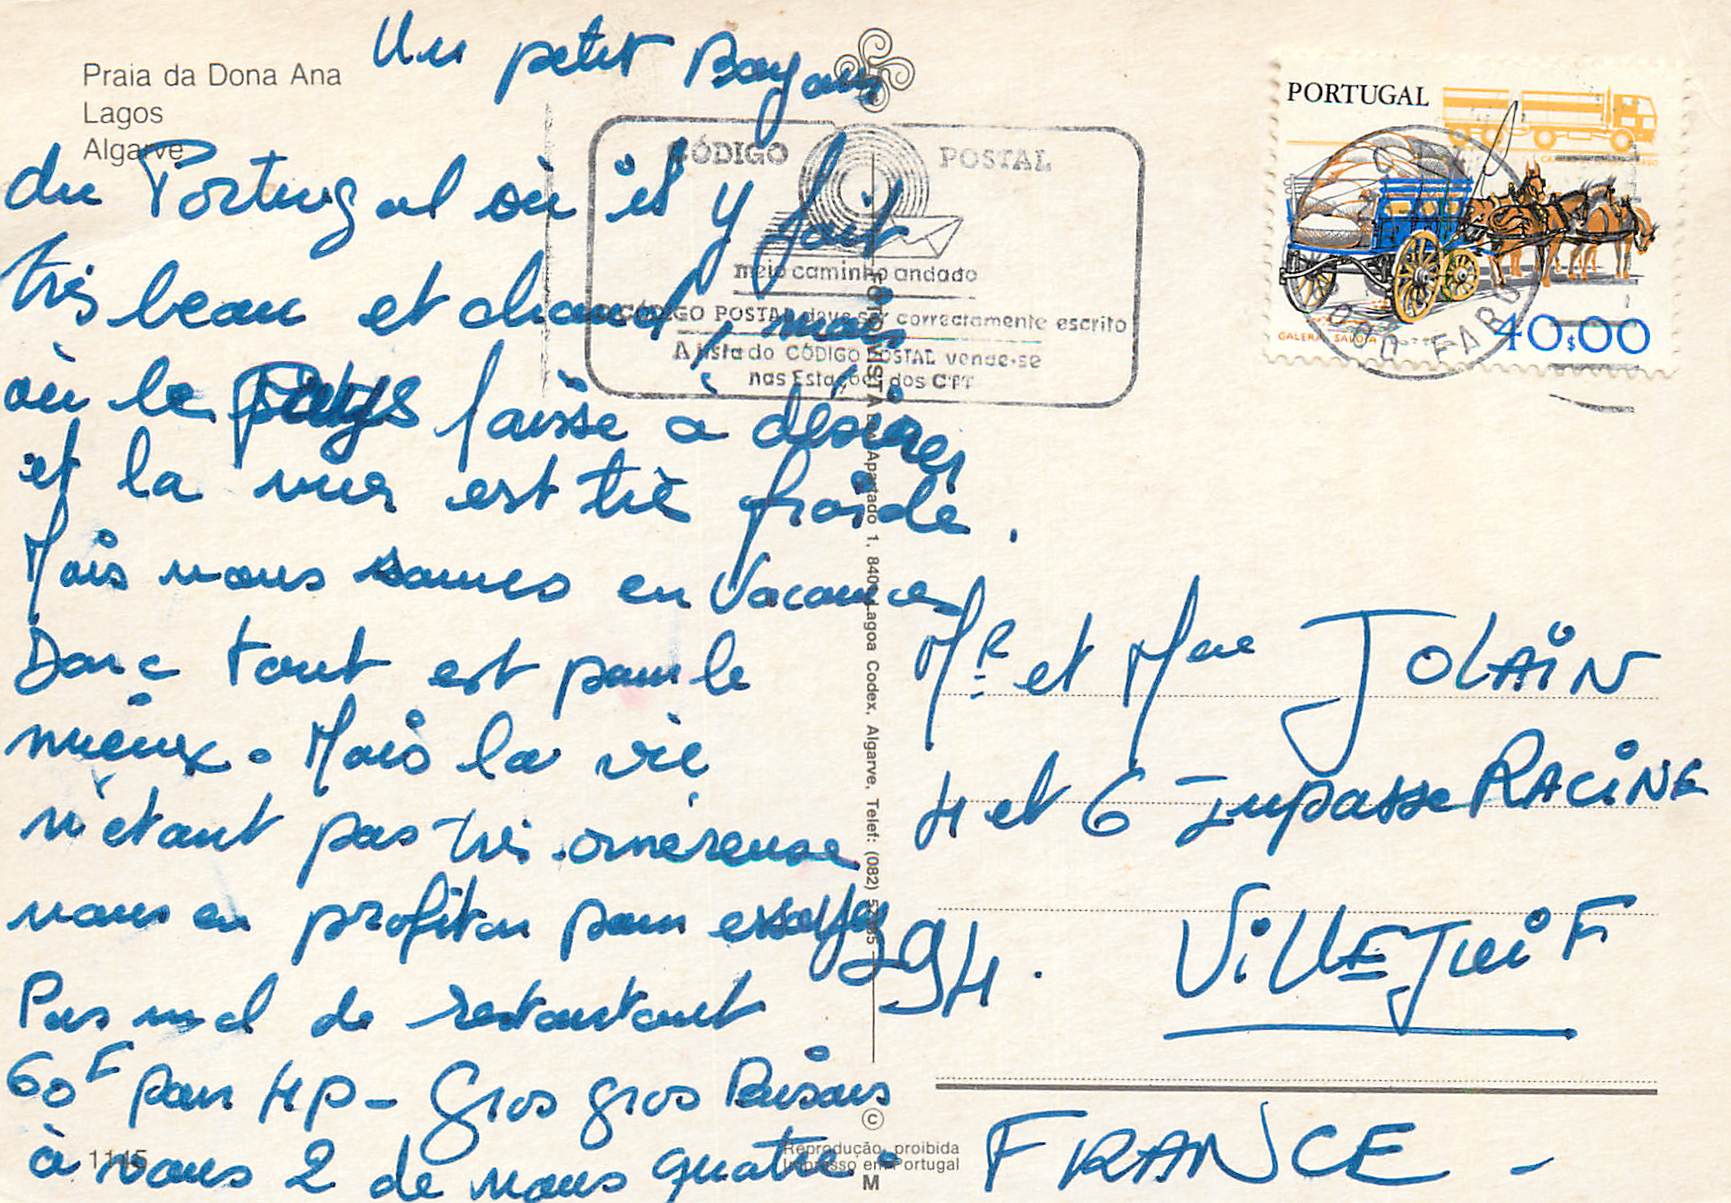 Praia da Dona Ana
Lagos
Algarve
Un petit
du Portugal où il y fait
très beau et chaud, mais
où le pays laisse à désirer
et la mer est très froide.
Mais nous sommes en Vacances
Donc tout est pour le
mieux. Mais la vie
n'étant pas très
nous en profiton pour essayer
Pas mal de
60F pour 4P - Gros gros Bisous
à vous 2 de nous quatre.
1115
CÓDIGO POSTAL
meio caminho andado
O CÓDIGO POSTAL deve ser correctamente escrito
A lista do CÓDIGO POSTAL vende-se
nas Estações dos CTT
PORTUGAL
GALERA
40$00
FARO
FOTO VISTA
Apartado 1, 8400 Lagoa Codex, Algarve, Telef: (082)
© Reprodução proibida
Impresso em Portugal
M
Mr et Mme JOLAIN
4 et 6 Impasse RACINE
94. VILLEJUIF
FRANCE -